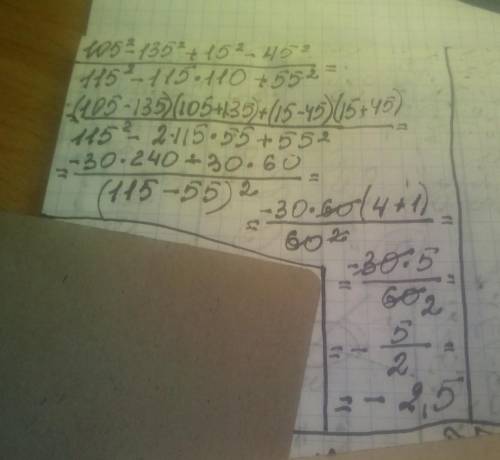 105² - 135² + 15² - 45²
115² - 115·110 + 55² =
= (105-135)(105+135)+(15-45)(15+45)
115² - 2·115·55 + 55² =
= -30·240 - 30·60
(115-55)² =
= -30·60(4+1)
60² =
= -30·5
60 2 =
= - 5
2 =
= - 2,5